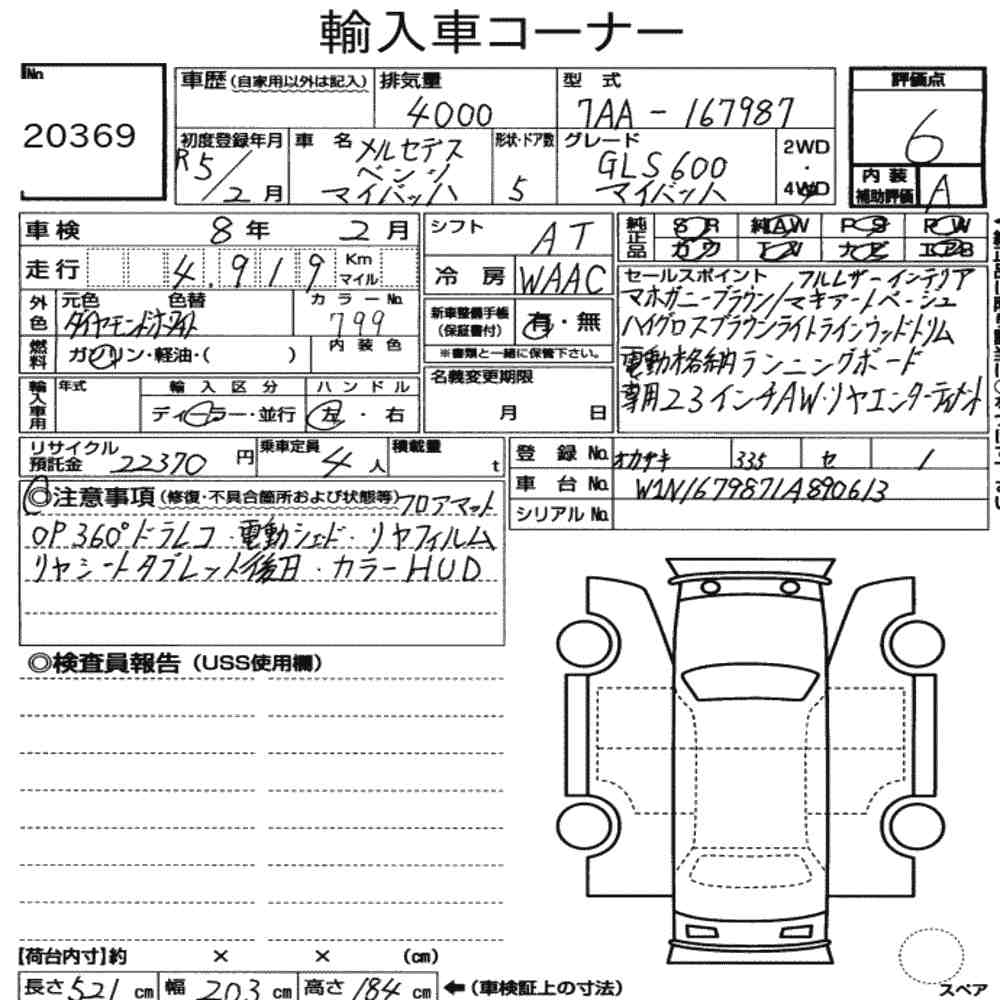 輸入車コーナー
No.
20369
車歴（自家用以外は記入）
排気量
4000
型式
7AA-167987
評価点
6
内装補助評価
A
初度登録年月
R5/2月
車名
メルセデス
ベンツ
マイバッハ
形状・ドア数
5
グレード
GLS600
マイバッハ
2WD
・
4WD
車検
8年 2月
シフト
AT
純正品
SR 純AW PS PW
カワ TV ナビ エアB
走行
4,919
Km
マイル
冷房
WAAC
セールスポイント フルレザーインテリア
マホガニーブラウン/マキアートベージュ
ハイグロスブラウンライトラインウッドトリム
電動格納ランニングボード
専用23インチAW・リヤエンターテイメント
外色
元色 色替
ダイヤモンドホワイト
カラーNo.
799
新車整備手帳
（保証書付）
有・無
※書類と一緒に保管下さい。
燃料
ガソリン・軽油・（ ）
内装色
名義変更期限
月 日
輸入車用
年式
輸入区分
ディーラー・並行
ハンドル
左・右
リサイクル預託金
22370円
乗車定員
4人
積載量
t
登録No.
オカザキ 335 セ 1
車台No.
W1N1679871A890613
シリアルNo.
◎注意事項（修復・不具合箇所および状態等）フロアマット
OP360°ドラレコ・電動シェード・リヤフィルム
リヤシートタブレット後日・カラーHUD
◎検査員報告（USS使用欄）
【荷台内寸】約 × × （cm）
長さ521cm 幅203cm 高さ184cm ←（車検証上の寸法）
スペア